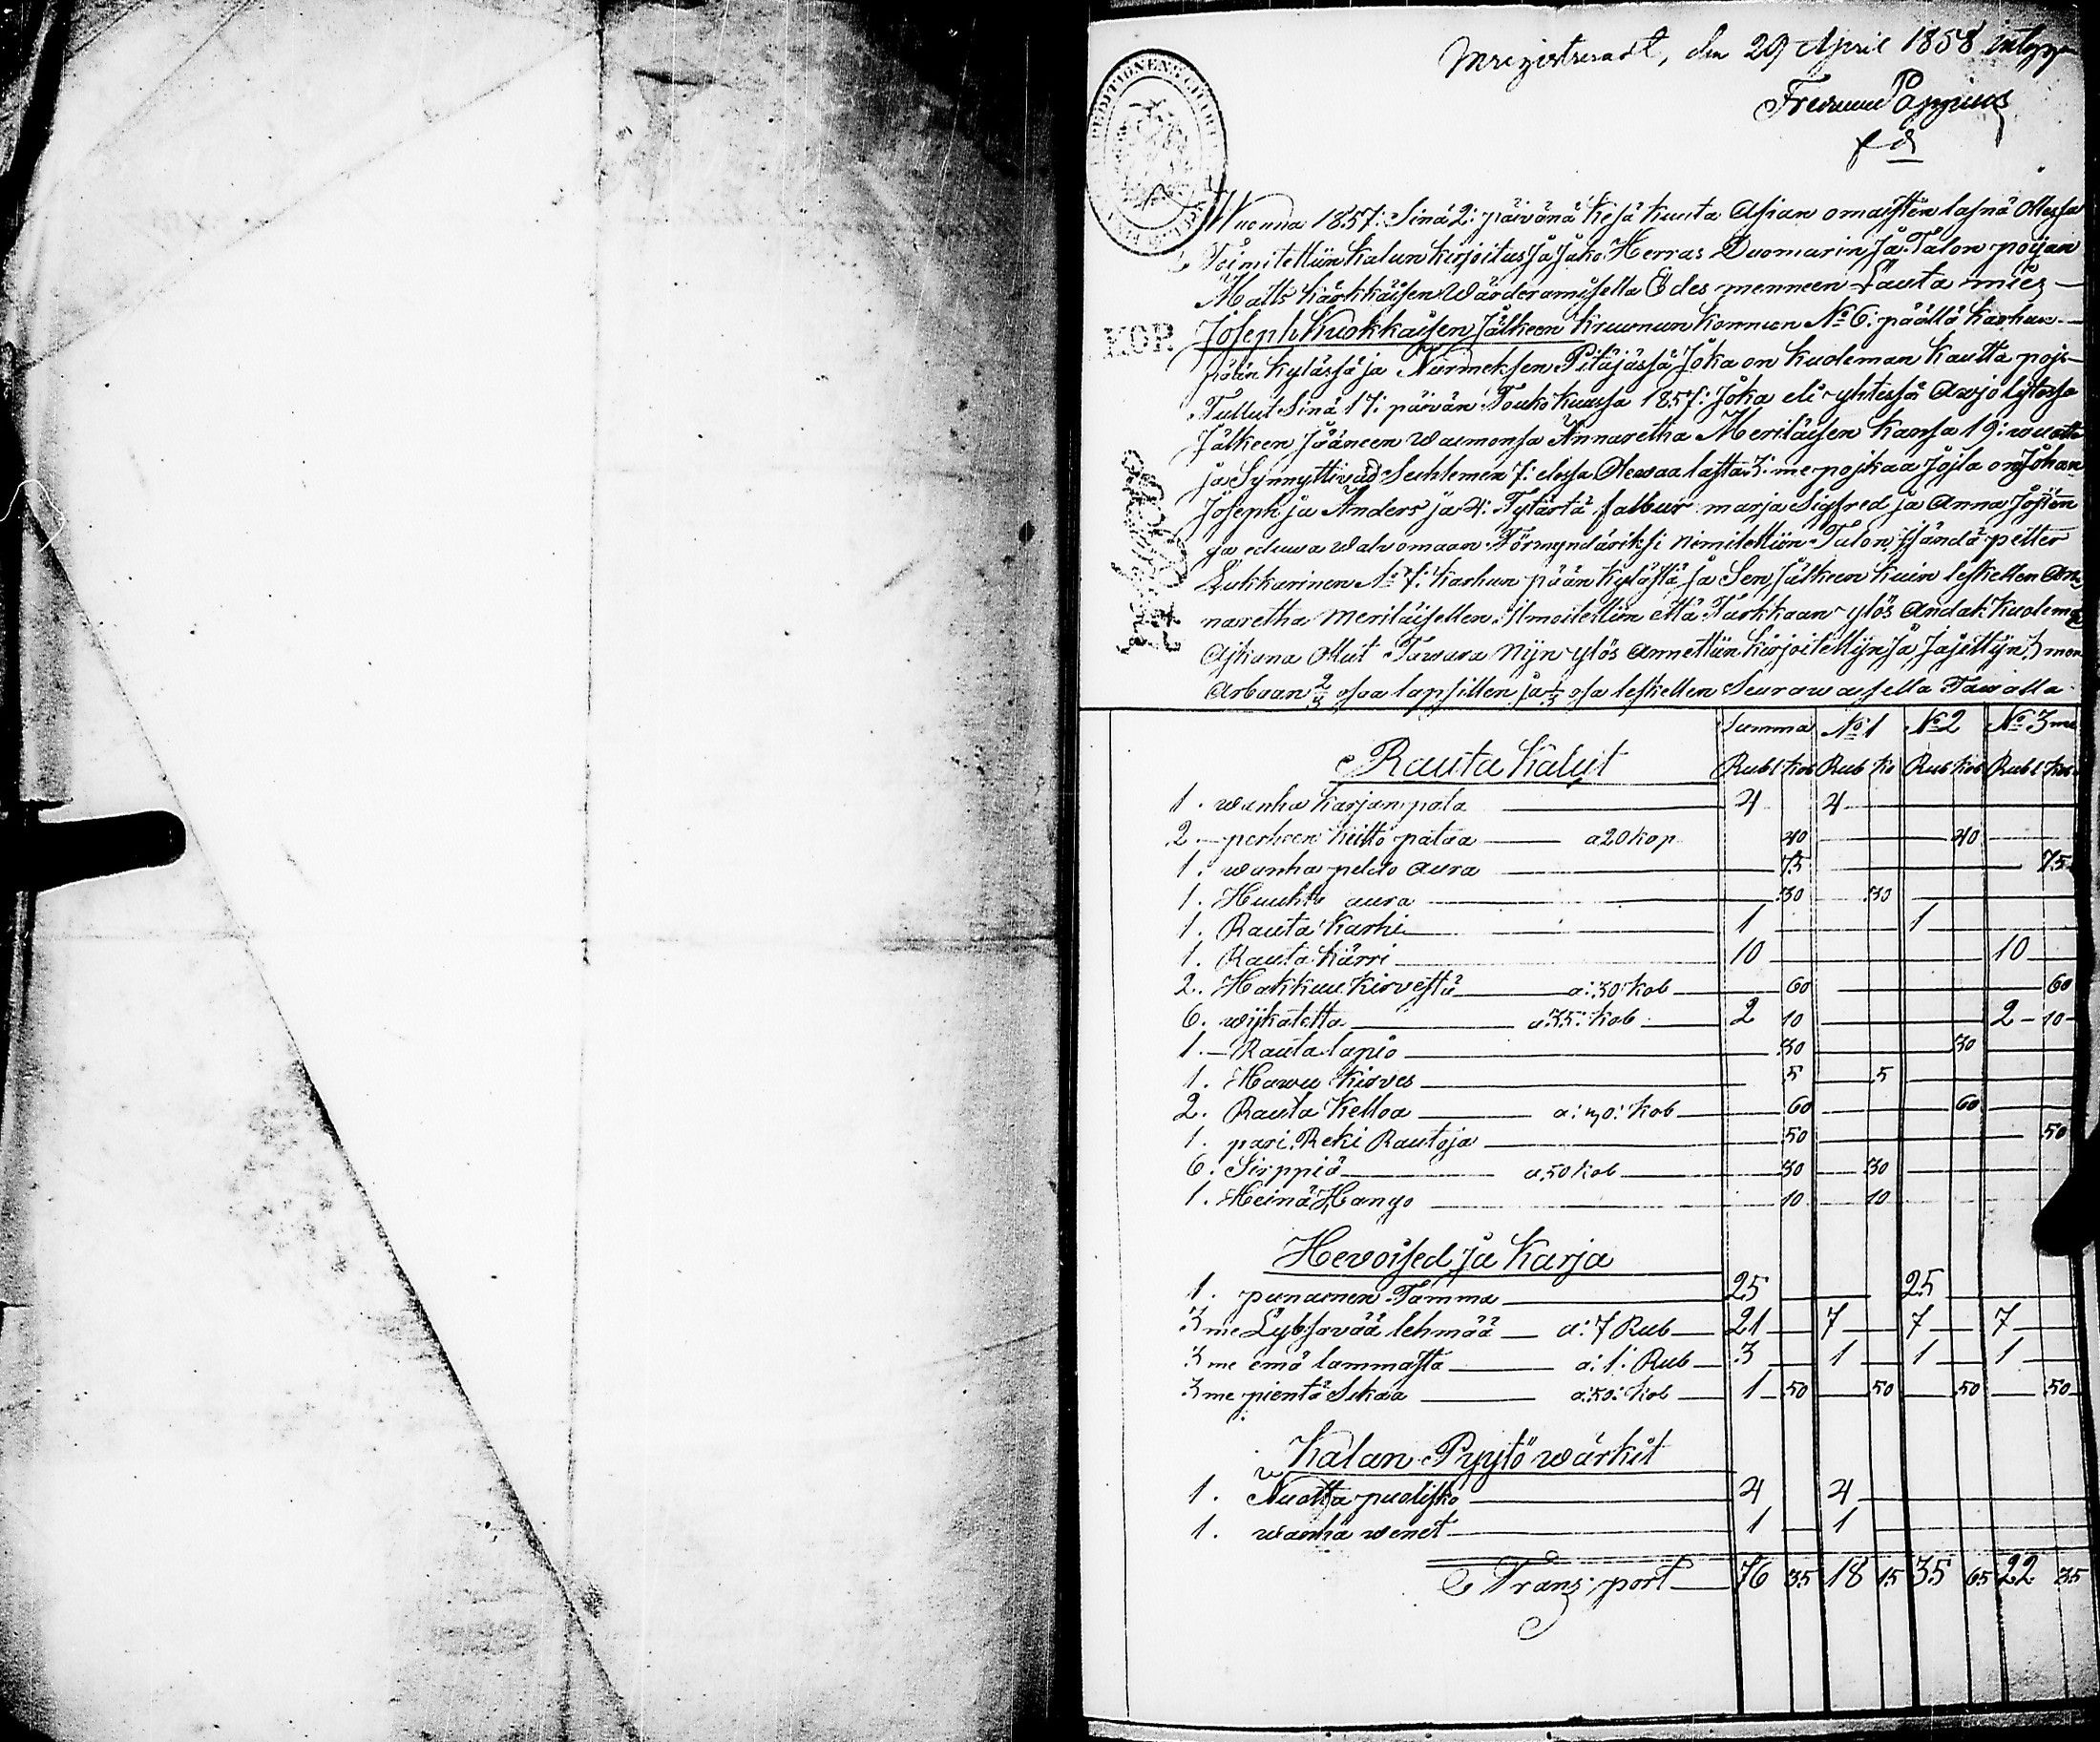 Mregistreradt, den 29 April 1858 intygar
Poppius
fd
EXPEDITIONENS CHARTA
KOP.
Wuonna 1857: Sinä 2: päivänä Kesä kuuta Asian omaisten lasnä ollessa
Toimitettiin kalun kirjoitus ja jako Herras Duomarin ja Talon pojan
Matts Kärkkäisen Wärderamisella Edes menneen Lauta mies
Joseph Kuokkaisen jälkeen kruunun konnun No 6: päällä Karhun-
pään kylässä ja Nurmeksen Pitäjässä Joka on kuoleman kautta pois-
Tullut Sinä 17: päivän Toukokuussa 1857: Joka eli yhtessä Awjo kytossa
Jälkeen Jääneen waimonsa Annaretha Meriläisen kansa 19: wuotta
ja Synnyttivad Seuhlemen 7: elossa Olewaa lasta 3: me pojkaa Joista on Johan
Joseph ja Anders ja 4: Tytärtä falbur marja Sigfred ja Anna Josten
ja eduwa walvomaan Förmyndäriksi nimitettiin Talon Isändä petter
Lukkarinen No 7: karhun pään kylästä ja Sen Jälkeen kuin leskellen An-
naretha Meriläisellen ilmoitettiin että Tarkkaan ylös andak kuoleman
Ajkana Ollut Tawara Nijn ylös annettiin kirjoitettijn ja jajettijn 3 men
Arbaan 2/3 osaa lapsillen ja 1/3 osa leskellen Seurawaisella Tawalla
Summa No 1 No 2 No 3 me
Rauta Kalut Rubl kob Rub ko Rub kob Rubl kob
1. wanha karjan pata 4 4
2. perheen keitto pataa a 20 kop 40 40
1. wanha peldo aura 75 75
1. Huuhta aura 30 30
1. Rauta karhi 1 1
1. Rauta kärri 10 10
2. Hakkuu kirvestä a: 30: kob 60 60
6. wijkatetta a: 35: kob 2 10 2 10
1. Rauta lapio 30 30
1. Hawu kirves 5 5
2. Rauta kelloa a: 30: kob 60 60
1. pari Reki Rautoja 50 50
6. Sirppiä a 50 kob 30 30
1. Heinä Hango 10 10
Hevoised ja Karja
1. punainen Tamma 25 25
3 me Lybsävää lehmää a: 7 Rub 21 7 7 7
3 me emä lammasta a: 1: Rub 3 1 1 1
3 me pientä Sikaa a: 50: kob 1 50 50 50 50
Kalan Pyytö wärkit
1. Nuotta puolisko 4 4
1. wanha wenet 1 1
Transport 76 35 18 15 35 65 22 35